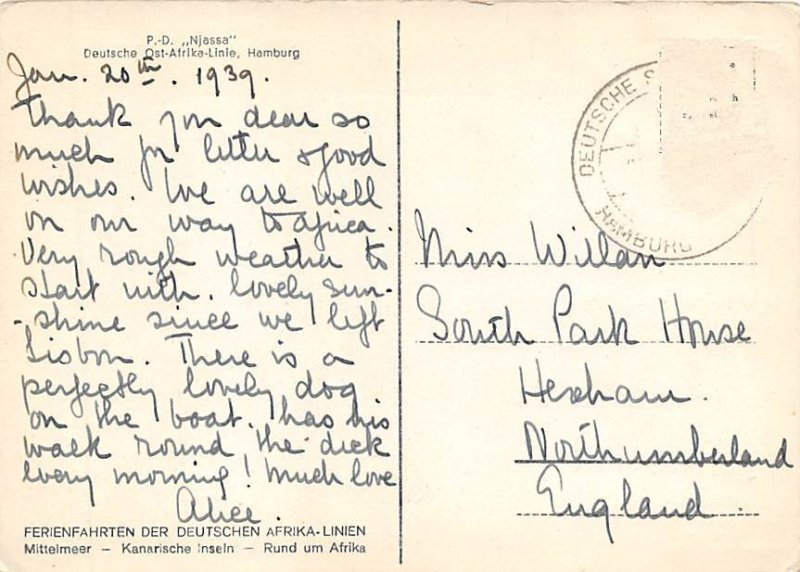 P.-D. „Njassa"
Deutsche Ost-Afrika-Linie, Hamburg
Jan. 20th. 1939.
Thank you dear so
much for letter & good
wishes. We are well
on our way to Africa.
Very rough weather to
start with. Lovely sun-
-shine since we left
Lisbon. There is a
perfectly lovely dog
on the boat. has his
walk round the deck
every morning! Much love
Alice.
FERIENFAHRTEN DER DEUTSCHEN AFRIKA-LINIEN
Mittelmeer – Kanarische Inseln – Rund um Afrika
DEUTSCHE S
HAMBURG
Miss Willan
South Park House
Hexham.
Northumberland
England.